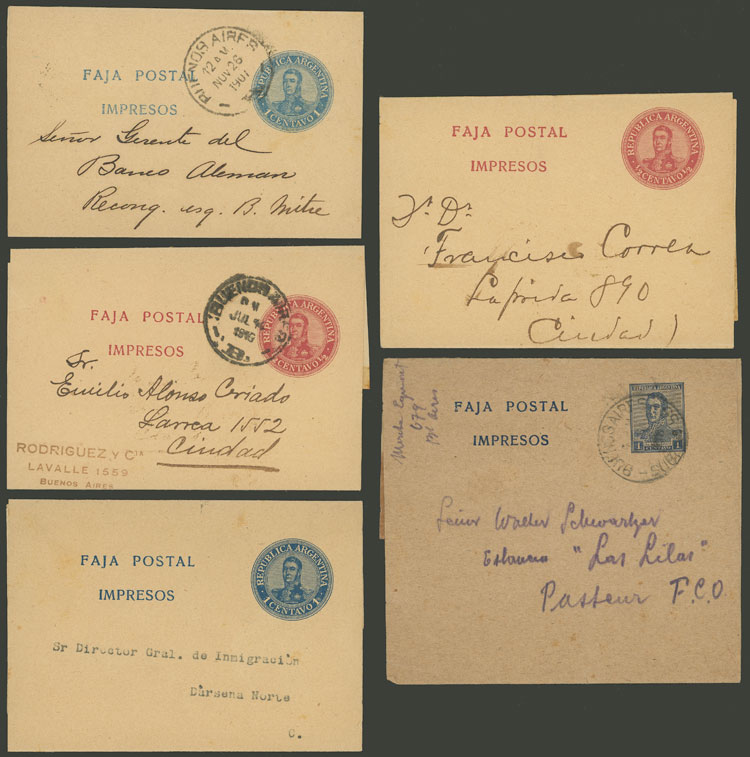 BUENOS AIRES
12 A.M.
NOV 26
1907
REPUBLICA ARGENTINA
1 CENTAVO 1
FAJA POSTAL
IMPRESOS
Señor Gerente del
Banco Aleman
Recong. esq. B. Mitre
REPUBLICA ARGENTINA
½ CENTAVO ½
FAJA POSTAL
IMPRESOS
BUENOS AIRES
JUL 14
1910
Sr.
Emilio Alonso Criado
Larrea 1552
Ciudad
RODRIGUEZ Y Cia
LAVALLE 1559
BUENOS AIRES
REPUBLICA ARGENTINA
1 CENTAVO 1
FAJA POSTAL
IMPRESOS
Sr Director Gral. de Inmigración
Dársena Norte
C.
REPUBLICA ARGENTINA
½ CENTAVO ½
FAJA POSTAL
IMPRESOS
Sr. Dr.
Francisco Correa
Laprida 890
Ciudad
679
Bs Aires
REPUBLICA ARGENTINA
1 1
FAJA POSTAL
IMPRESOS
BUENOS AIRES
Señor Walter Schwartzer
Estancia "Las Lilas"
Pasteur F.C.O.